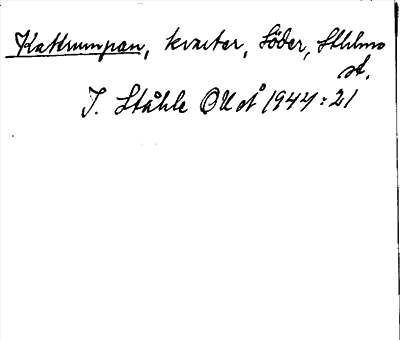 Kattrumpan, kvarter, Söder, Sthlms
st.
I. Ståhle OUÅ 1944:21